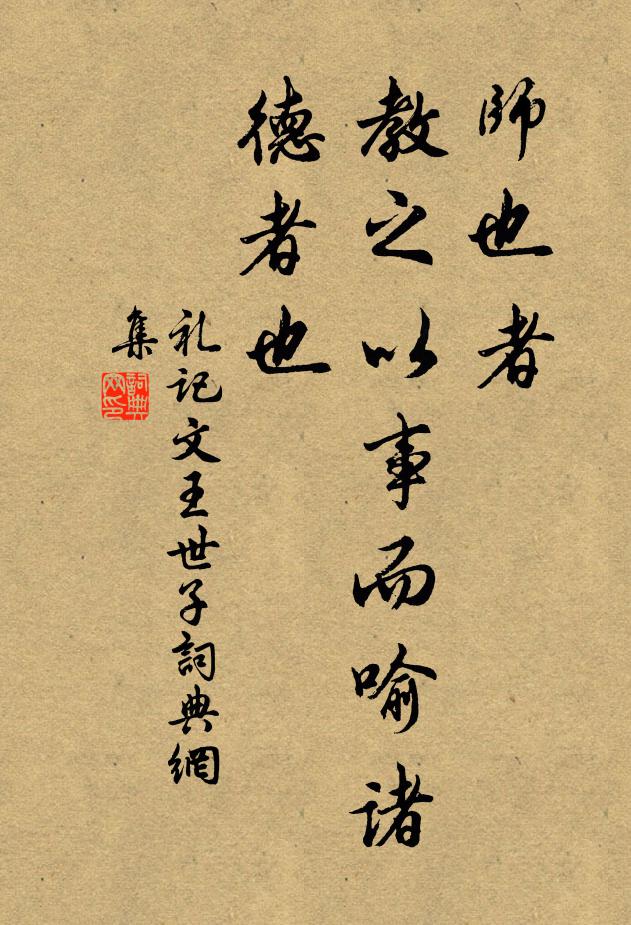 師也者
教之以事而喻諸
德者也
礼記文王世子詞典網
集
詞典
网印